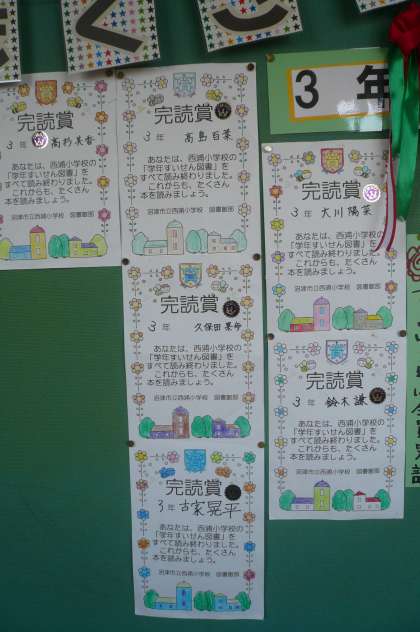 3年
完読賞
3年
あなたは、西浦小学校の
「学年すいせん図書」を
すべて読み終わりました。
これからも、たくさん
本を読みましょう。
沼津市立西浦小学校 図書館部
完読賞
3年 高島百葉
あなたは、西浦小学校の
「学年すいせん図書」を
すべて読み終わりました。
これからも、たくさん
本を読みましょう。
沼津市立西浦小学校 図書館部
完読賞
3年 久保田果歩
あなたは、西浦小学校の
「学年すいせん図書」を
すべて読み終わりました。
これからも、たくさん
本を読みましょう。
沼津市立西浦小学校 図書館部
完読賞
3年 古家晃平
あなたは、西浦小学校の
「学年すいせん図書」を
すべて読み終わりました。
これからも、たくさん
本を読みましょう。
沼津市立西浦小学校 図書館部
完読賞
3年 大川陽菜
あなたは、西浦小学校の
「学年すいせん図書」を
すべて読み終わりました。
これからも、たくさん
本を読みましょう。
沼津市立西浦小学校 図書館部
完読賞
3年 鈴木謙
あなたは、西浦小学校の
「学年すいせん図書」を
すべて読み終わりました。
これからも、たくさん
本を読みましょう。
沼津市立西浦小学校 図書館部